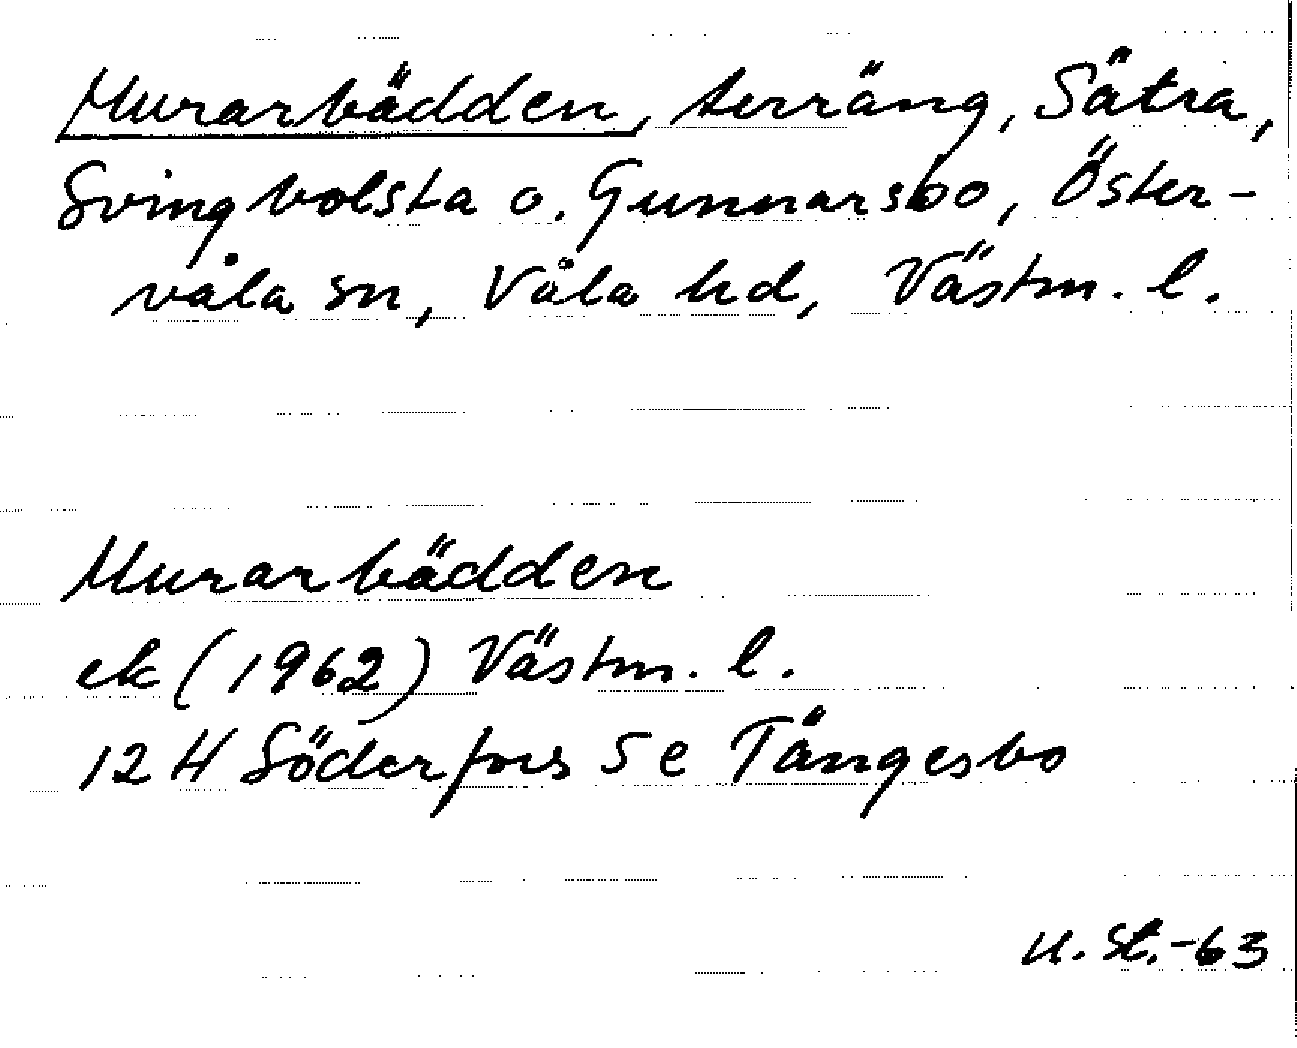 Murarbädden, terräng, Sätra,
Svingbolsta o. Gunnarsbo, Öster-
våla sn, Våla hd, Västm. l.
Murarbädden
ek (1962) Västm. l.
12 H Söderfors 5 e Tängesbo
U. St.-63